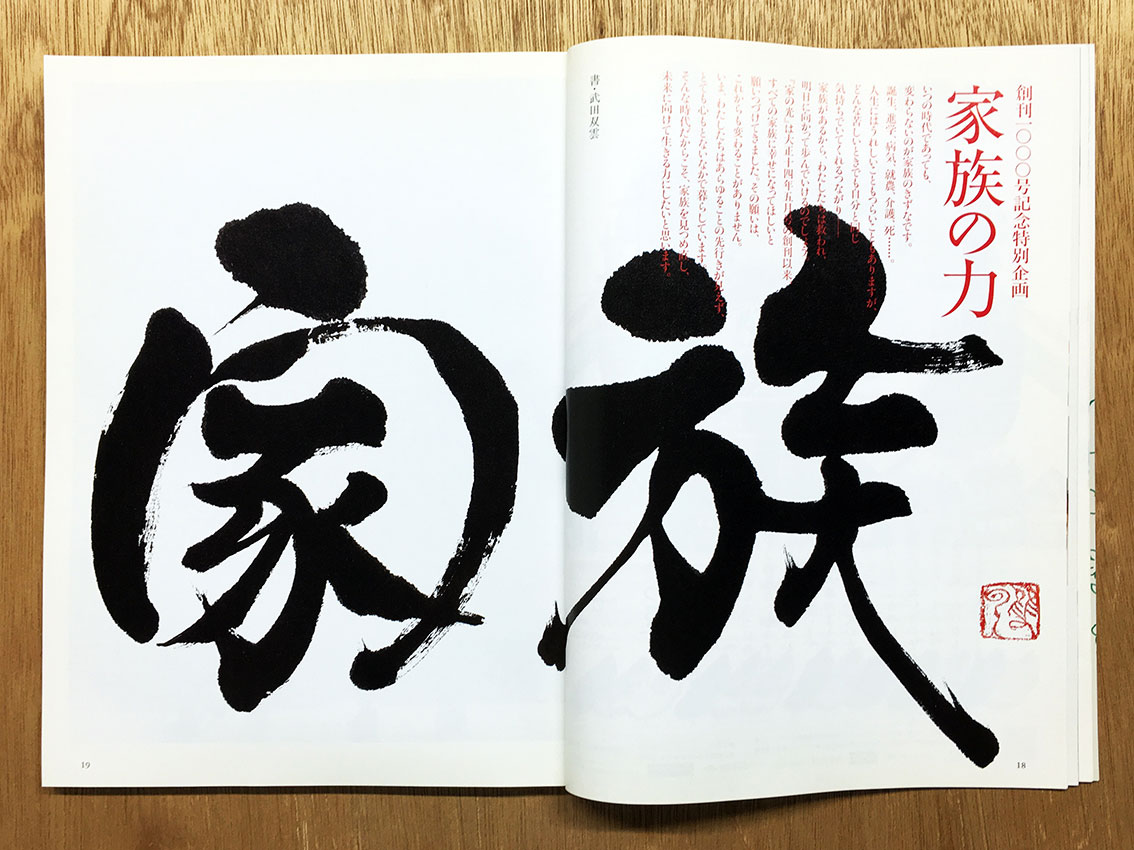 創刊一〇〇〇号記念特別企画
家族の力
いつの時代であっても、
変わらないのが家族のきずなです。
誕生、進学、病気、就農、介護、死……。
人生にはうれしいこともつらいこともありますが、
どんな苦しいときでも自分と同じ
気持ちでいてくれるつながり――
家族があるから、わたしたちは救われ、
明日に向かって歩んでいけるのでしょう。
『家の光』は大正十四年五月の創刊以来
すべての家族に幸せになってほしいと
願いつづけてきました。その願いは、
これからも変わることがありません。
いま、わたしたちはあらゆることの先行きが見えず、
とても心もとないなかで暮らしています。
そんな時代だからこそ、家族を見つめ直し、
未来に向けて生きる力にしたいと思います。
書・武田双雲
家族
18
19